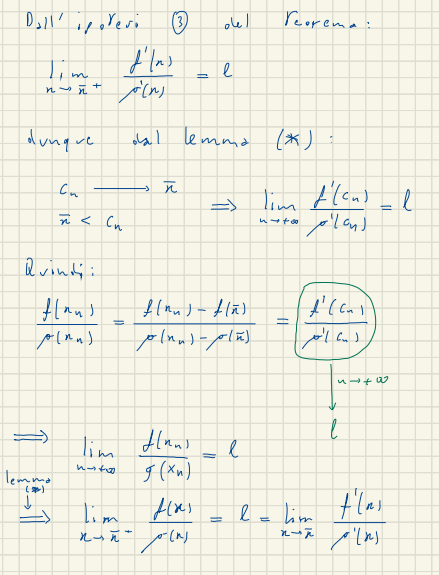 Dall'ipotesi ③ del teorema:
lim x→x̄⁺ f'(x)/g'(x) = l
dunque dal lemma (*):
cₙ ⟶ x̄
x̄ < cₙ ⟹ lim n→+∞ f'(cₙ)/g'(cₙ) = l
Quindi:
f(xₙ)/g(xₙ) = (f(xₙ) - f(x̄))/(g(xₙ) - g(x̄)) = f'(cₙ)/g'(cₙ)
n→+∞
l
⟹ lim n→+∞ f(xₙ)/g(xₙ) = l
lemma
(*)
⟹ lim x→x̄⁺ f(x)/g(x) = l = lim x→x̄ f'(x)/g'(x)